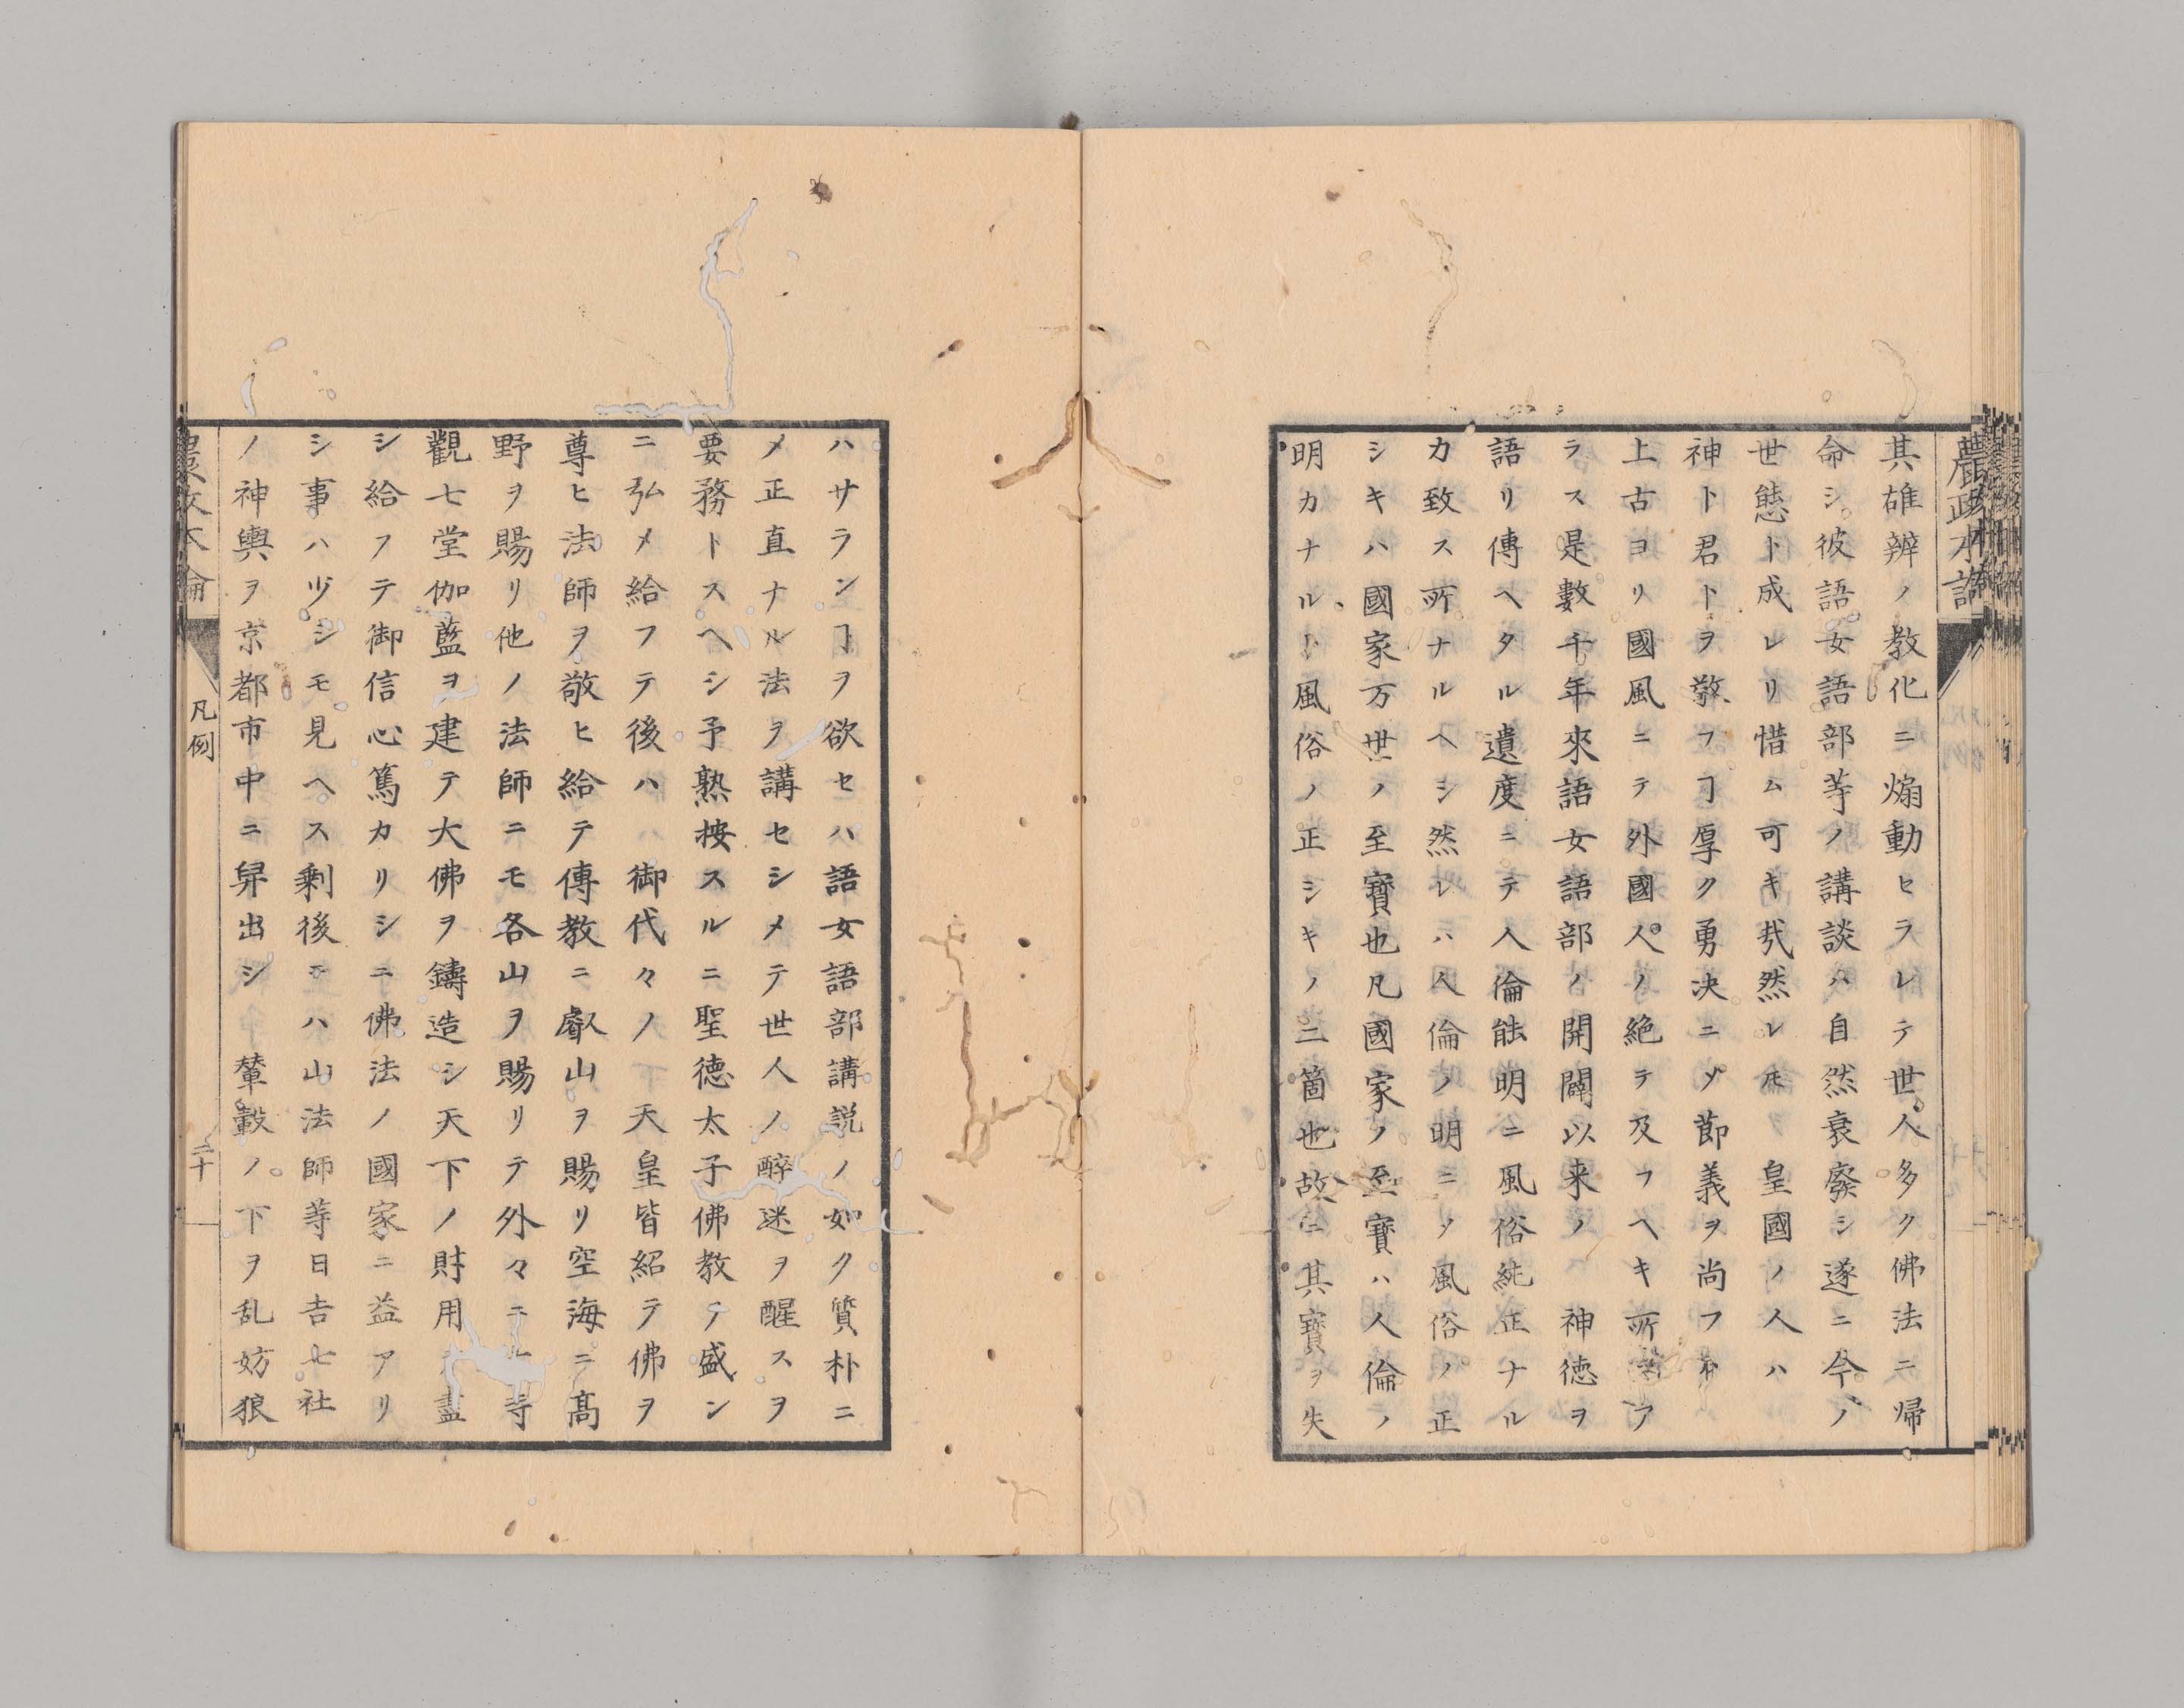 農政本論
其雄辨ノ教化ニ煽動セラレテ世人多ク佛法ニ帰
命シ彼語女語部等ノ講談ハ自然衰廢シ遂ニ今ノ
世態ト成レリ惜ム可キ哉然レ𪜈皇國ノ人ハ
神ト君トヲ敬フヿ厚ク勇決ニメ節義ヲ尚フ
上古ヨリ國風ニテ外國人ノ絶テ及フヘキ所ニア
ラス是數千年來語女語部ノ開闢以来ノ神徳ヲ
語リ傳ヘタル遺度ニテ人倫能明ニ風俗純正ナル
カ致ス所ナルヘシ然レハ人倫ノ明ニメ風俗ノ正
シキハ國家万世ノ至寳也凡國家ノ至寳ハ人倫ノ
明カナルト風俗ノ正シキノ二箇也故ニ其寳ヲ失
ハサランヿヲ欲セハ語女語部講説ノ如ク質朴ニ
メ正直ナル法ヲ講セシメテ世人ノ醉迷ヲ醒スヲ
要務トスヘシ予熟按スルニ聖德太子佛教ヲ盛ン
ニ弘メ給フテ後ハ御代々ノ天皇皆紹テ佛ヲ
尊ヒ法師ヲ敬ヒ給テ傳教ニ叡山ヲ賜リ空海ニ髙
野ヲ賜リ他ノ法師ニモ各山ヲ賜リテ外々ニモ寺
觀七堂伽藍ヲ建テ大佛ヲ鑄造シ天下ノ財用ヲ盡
シ給フテ御信心篤カリシニ佛法ノ國家ニ益アリ
シ事ハ少シモ見ヘス剰後ニハ山法師等日吉七社
ノ神輿ヲ京都市中ニ舁出シ輦轂ノ下ヲ乱妨狼
農政本論
凡例
二十